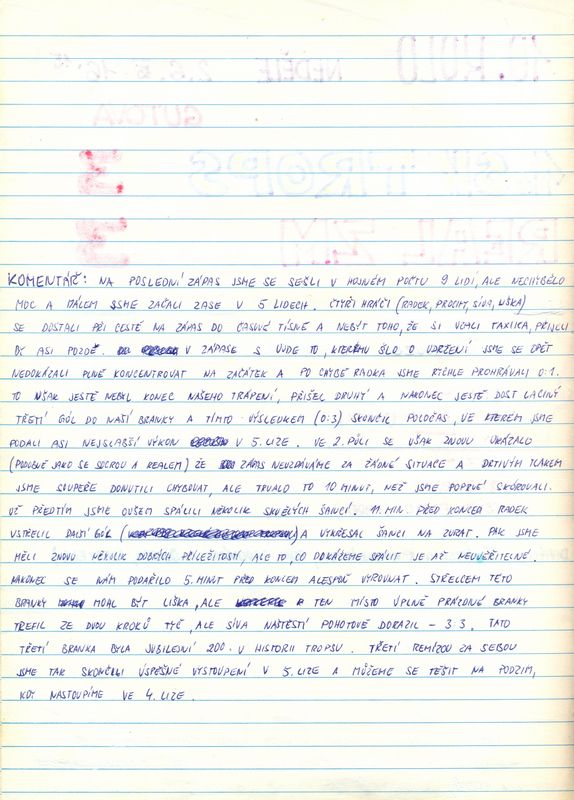 KOMENTÁŘ: NA POSLEDNÍ ZÁPAS JSME SE SEŠLI V HOJNÉM POČTU 9 LIDÍ, ALE NECHYBĚLO
MOC A MÁLEM JSME ZAČALI ZASE V 5 LIDECH. ČTYŘI HRÁČI (RADEK, PROCHY, SÍVA, LIŠKA)
SE DOSTALI PŘI CESTĚ NA ZÁPAS DO ČASOVÉ TÍSNĚ A NEBÝT TOHO, ŽE SI VZALI TAXIKA, PŘIJELI
BY ASI POZDĚ. V ZÁPASE S TO, KTERÉMU ŠLO O UDRŽENÍ JSME SE OPĚT
NEDOKÁZALI PLNĚ KONCENTROVAT NA ZAČÁTEK A PO CHYBĚ RADKA JSME RYCHLE PROHRÁVALI 0:1.
TO VŠAK JEŠTĚ NEBYL KONEC NAŠEHO TRÁPENÍ, PŘIŠEL DRUHÝ A NAKONEC JEŠTĚ DOST LACINÝ
TŘETÍ GÓL DO NAŠÍ BRANKY A TÍMTO VÝSLEDKEM (0:3) SKONČIL POLOČAS, VE KTERÉM JSME
PODALI ASI NEJSLABŠÍ VÝKON V 5. LIZE. VE 2. PŮLI SE VŠAK ZNOVU UKÁZALO
(PODOBNĚ JAKO SE SOCROU A REALEM) ŽE ZÁPAS NEVZDÁVÁME ZA ŽÁDNÉ SITUACE A DRTIVÝM TLAKEM
JSME SOUPEŘE DONUTILI CHYBOVAT, ALE TRVALO TO 10 MINUT, NEŽ JSME POPRVÉ SKÓROVALI.
UŽ PŘEDTÍM JSME OVŠEM SPÁLILI NĚKOLIK SKVĚLÝCH ŠANCÍ. 11. MIN. PŘED KONCEM RADEK
VSTŘELIL DALŠÍ GÓL ( ) A VYKŘESAL ŠANCI NA ZVRAT. PAK JSME
MĚLI ZNOVU NĚKOLIK DOBRÝCH PŘÍLEŽITOSTÍ, ALE TO, CO DOKÁŽEME SPÁLIT JE AŽ NEUVĚŘITELNÉ.
NAKONEC SE NÁM PODAŘILO 5. MINUT PŘED KONCEM ALESPOŇ VYROVNAT. STŘELCEM TÉTO
BRANKY MOHL BÝT LIŠKA, ALE TEN MÍSTO ÚPLNĚ PRÁZDNÉ BRANKY
TREFIL ZE DVOU KROKŮ TYČ, ALE SÍVA NAŠTĚSTÍ POHOTOVĚ DORAZIL - 3:3. TATO
TŘETÍ BRANKA BYLA JUBILEJNÍ 200. V HISTORII TROPSU. TŘETÍ REMÍZOU ZA SEBOU
JSME TAK SKONČILI ÚSPĚŠNÉ VYSTOUPENÍ V 5. LIZE A MŮŽEME SE TĚŠIT NA PODZIM,
KDY NASTOUPÍME VE 4. LIZE.